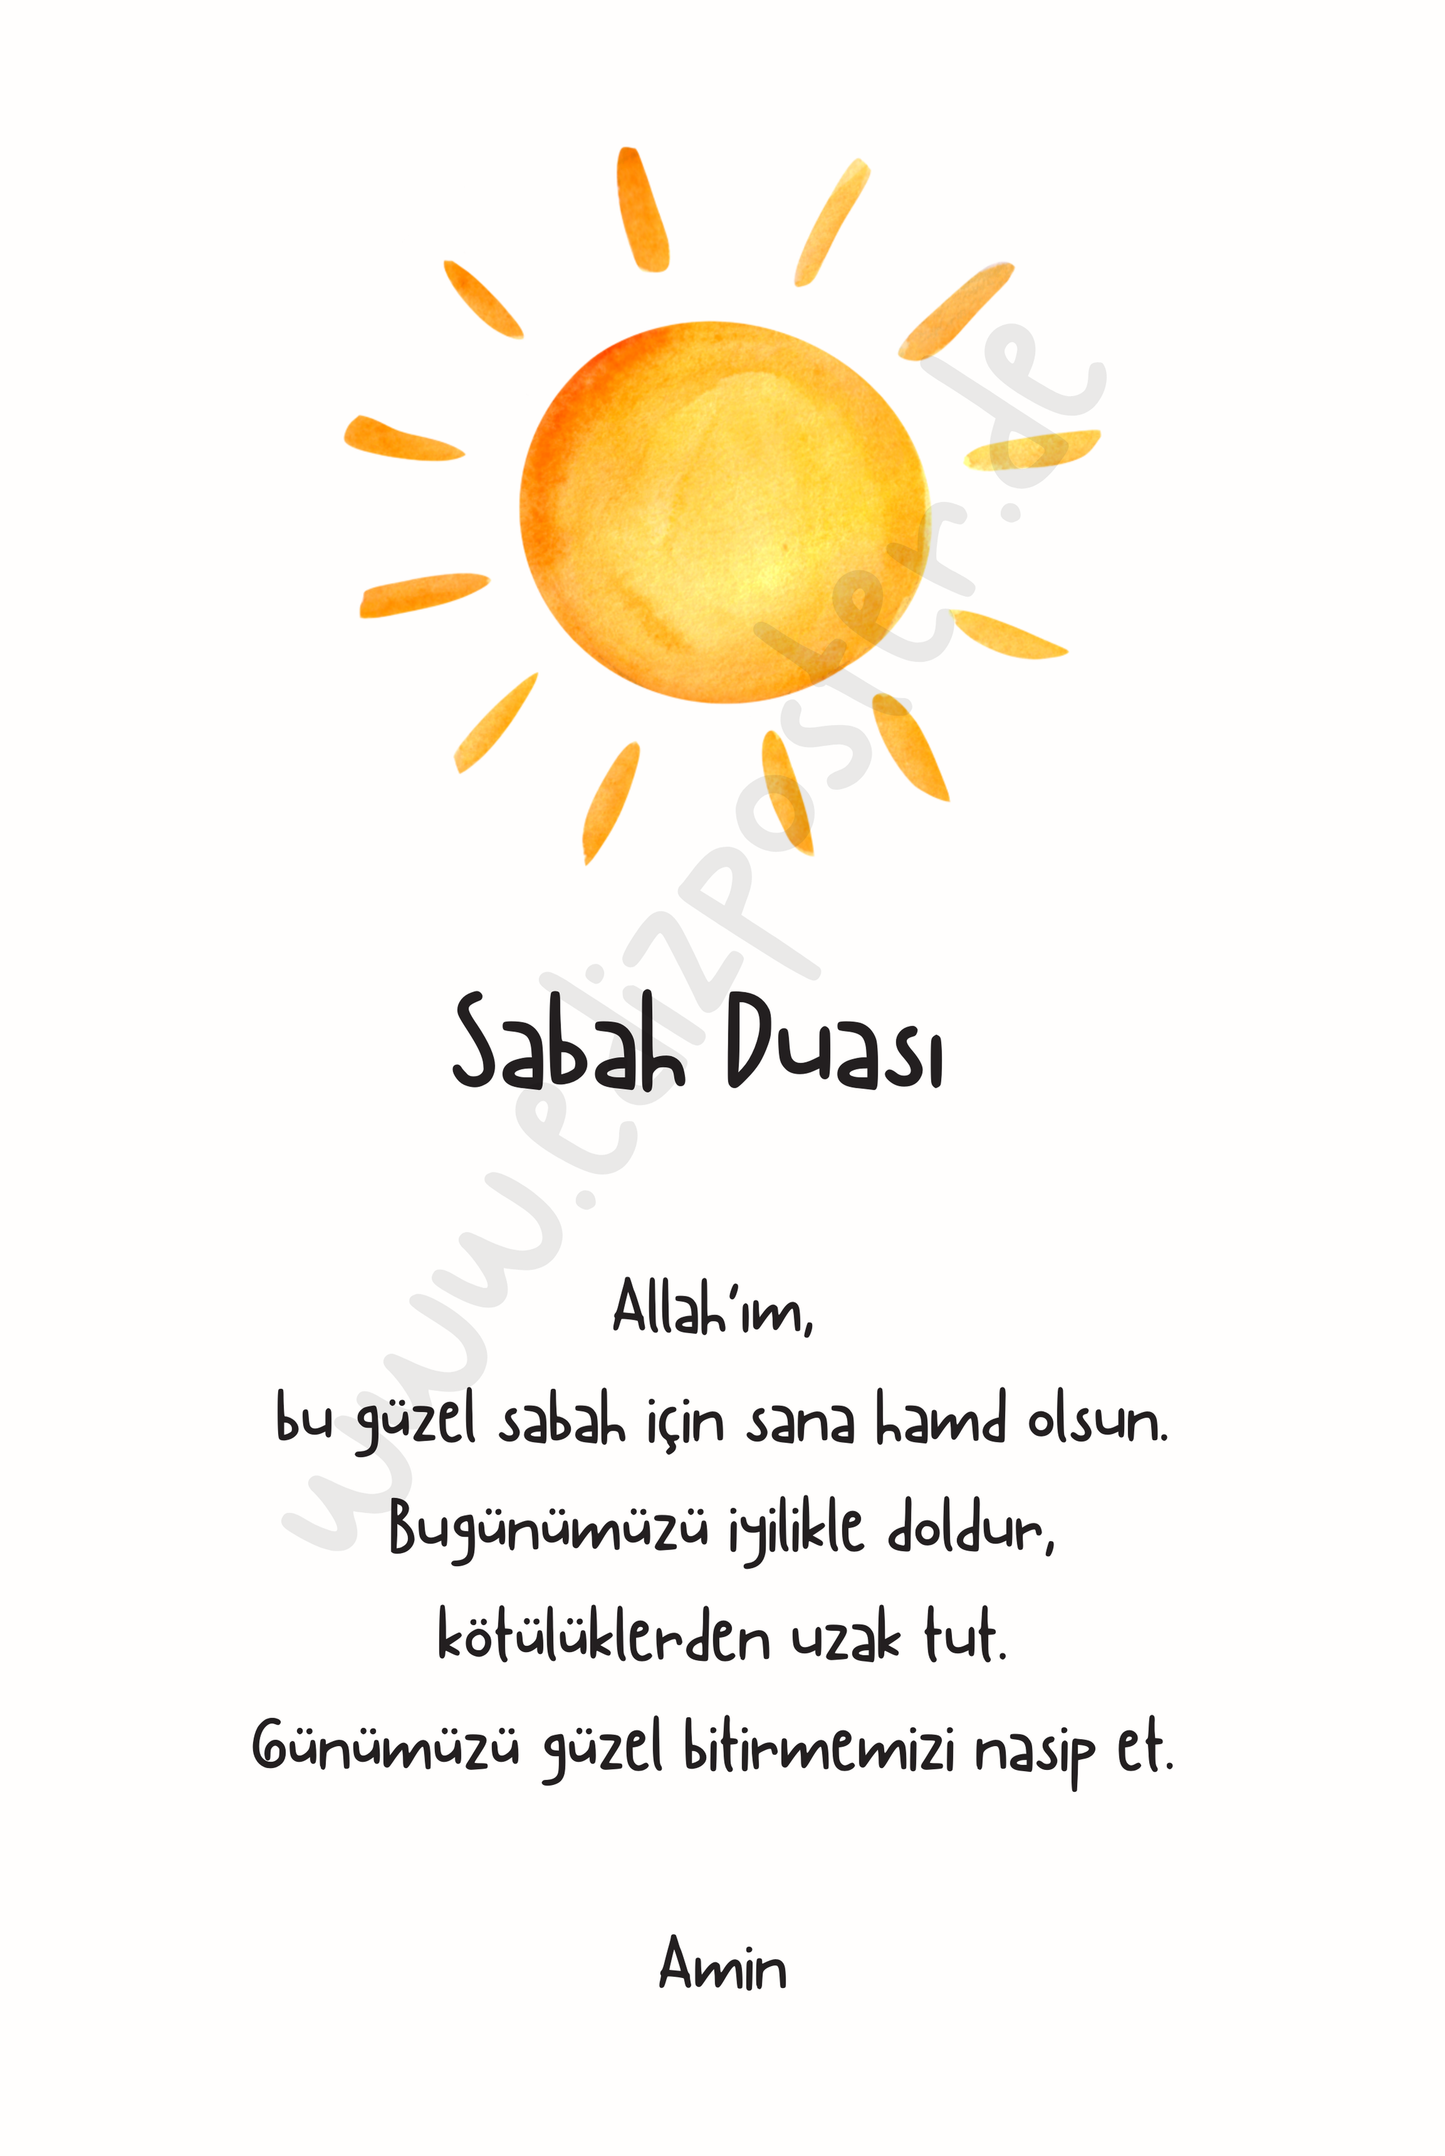 www.edizposter.de
Sabah Duası
Allah'ım,
bu güzel sabah için sana hamd olsun.
Bugünümüzü iyilikle doldur,
kötülüklerden uzak tut.
Günümüzü güzel bitirmemizi nasip et.
Amin